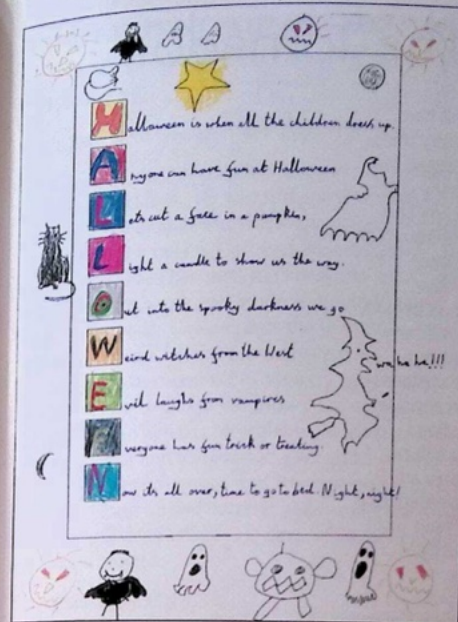 Halloween is when all the children dress up.
Anyone can have fun at Halloween
Lets cut a face in a pumpkin,
Light a candle to show us the way.
Out into the spooky darkness we go
Weird witches from the West
wa he he!!!
Evil laughs from vampires
Everyone has fun trick or treating.
Now its all over, time to go to bed. Night, night!